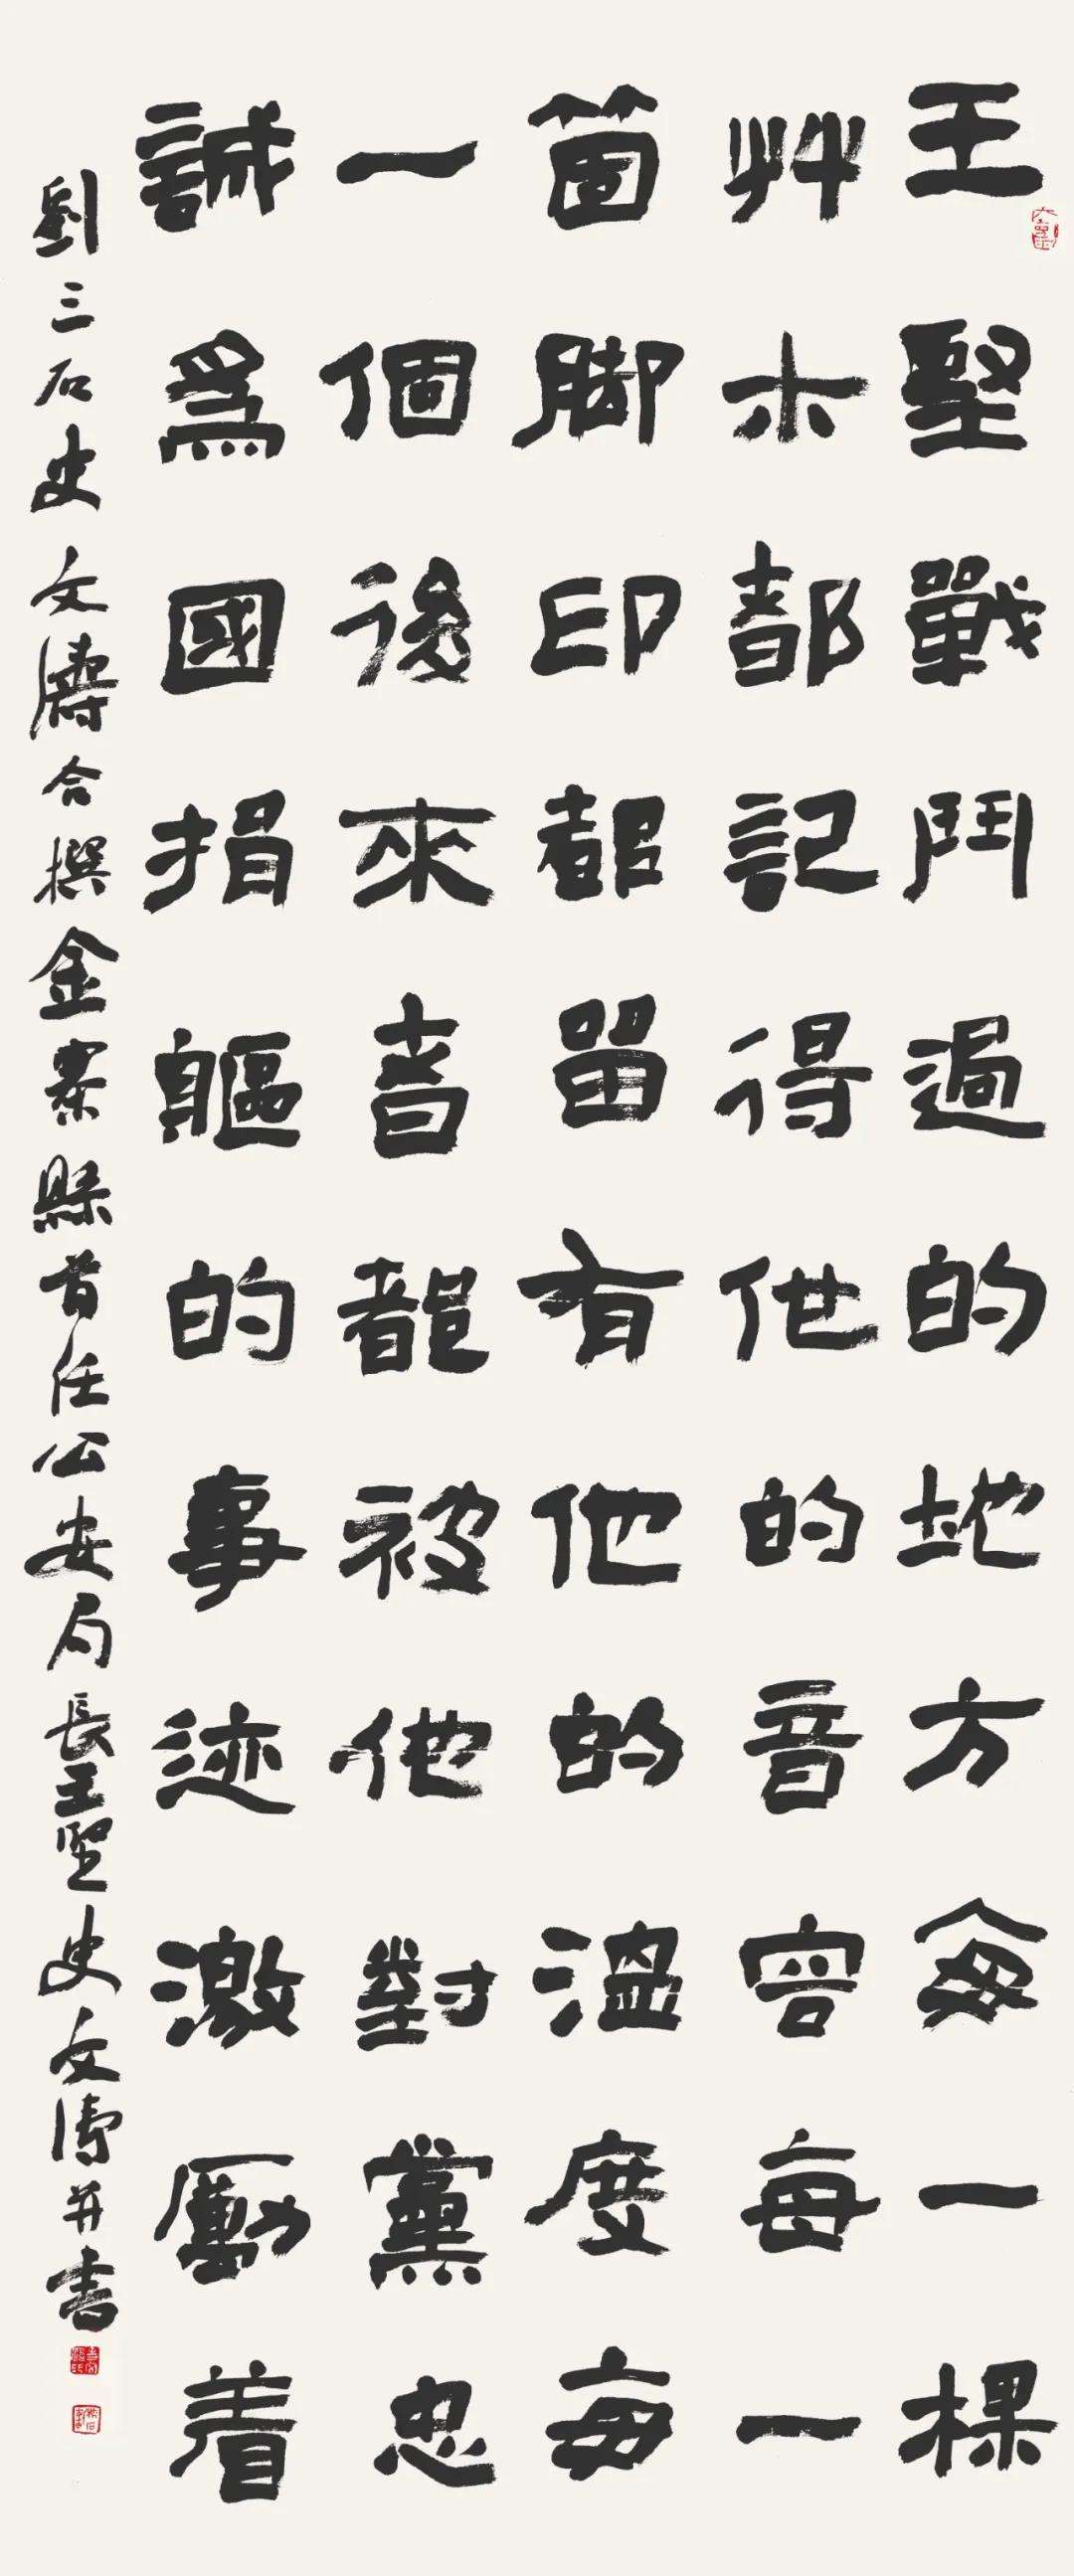 王堅戰鬥過的地方每一棵
艸木都記得他的音容每一
箇脚印都留有他的溫度每
一個後來者都被他對黨忠
誠爲國捐軀的事迹激勵着
劉三石史文濤合撰金寨縣首任公安局長王堅史文濤并書